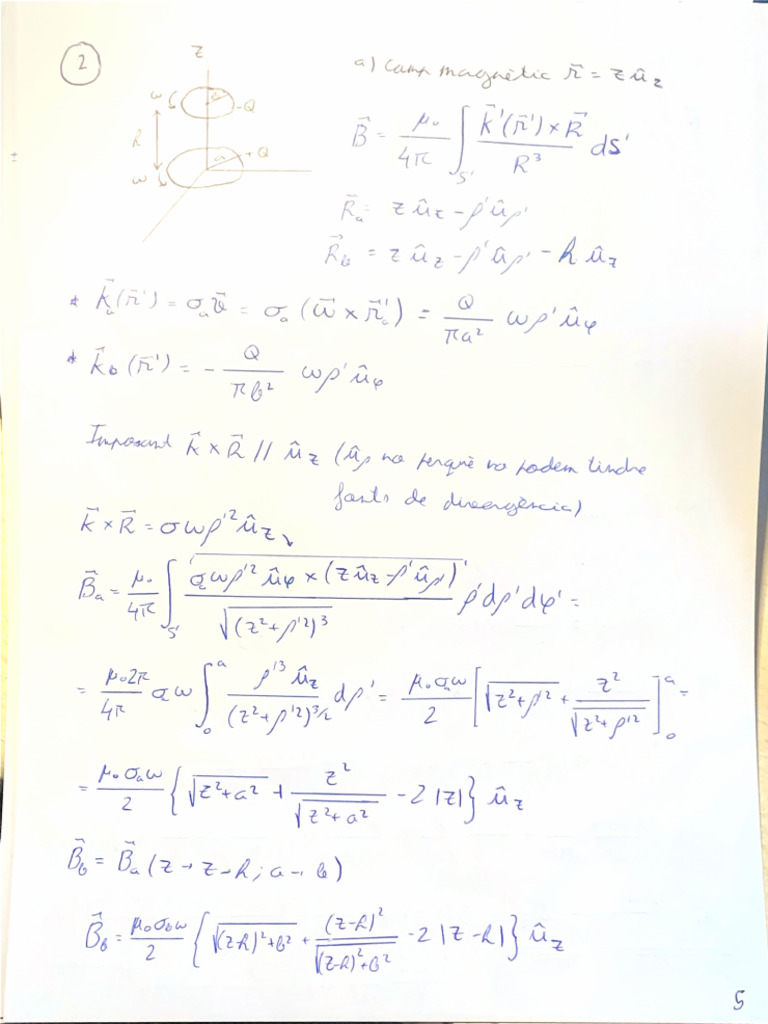 2
z
a) Camp magnètic r⃗ = z û_z
ω a -Q
B⃗ = μ₀/4π ∫_S' K⃗'(r⃗')×R⃗ / R³ dS'
h
ω a +Q
R⃗_a = z û_z - ρ'û_ρ'
R⃗_b = z û_z - ρ'û_ρ' - h û_z
* K⃗_a(r⃗') = σ_a v⃗ = σ_a (ω⃗ × r⃗'_a) = Q/πa² ωρ'û_φ
* K⃗_b(r⃗') = - Q/πb² ωρ'û_φ
Imposant K⃗×R⃗ // û_z (û_ρ no perquè no podem tindre
fonts de divergència)
K⃗×R⃗ = σωρ'²û_z
B⃗_a = μ₀/4π ∫_S' σ_a ωρ'² û_φ × (z û_z - ρ'û_ρ') / √(z²+ρ'²)³ ρ'dρ'dφ' =
= μ₀2π/4π σ_a ω ∫₀^a ρ'³ û_z / (z²+ρ'²)^3/2 dρ' = μ₀σ_aω/2 [√z²+ρ'² + z²/√z²+ρ'²]₀^a =
= μ₀σ_aω/2 {√z²+a² + z²/√z²+a² - 2|z|} û_z
B⃗_b = B⃗_a (z → z-h; a → b)
B⃗_b = μ₀σ_bω/2 {√(z-h)²+b² + (z-h)²/√(z-h)²+b² - 2|z-h|} û_z
5